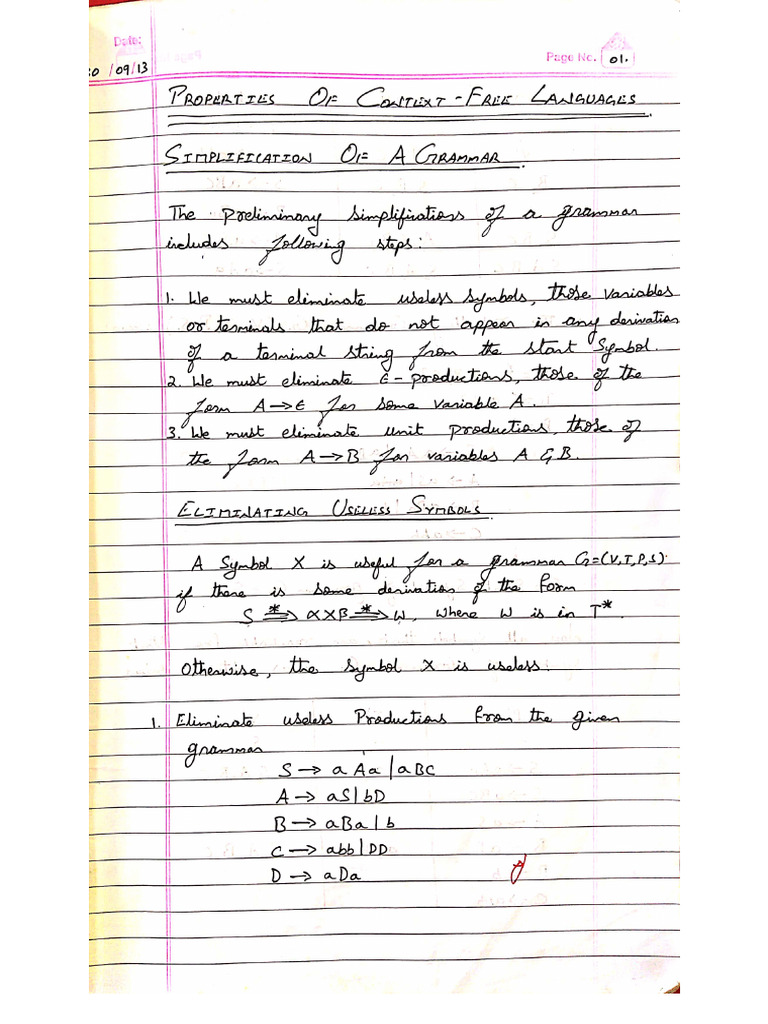 Date:
Page No. 01.
/09/13
PROPERTIES OF CONTEXT-FREE LANGUAGES
SIMPLIFICATION OF A GRAMMAR
The preliminary simplifications of a grammar
includes following steps:
1. We must eliminate useless symbols, those variables
or terminals that do not appear in any derivation
of a terminal string from the start Symbol.
2. We must eliminate ϵ-productions, those of the
form A→ϵ for some variable A.
3. We must eliminate unit productions, those of
the form A→B for variables A & B.
ELIMINATING USELESS SYMBOLS
A Symbol X is useful for a grammar G=(V,T,P,S)
if there is some derivation of the form
S *⇒ αXβ *⇒ W, where W is in T*.
Otherwise, the symbol X is useless.
1. Eliminate useless Productions from the given
grammar
S → aAa | aBC
A → aS | bD
B → aBa | b
C → abb | DD
D → aDa